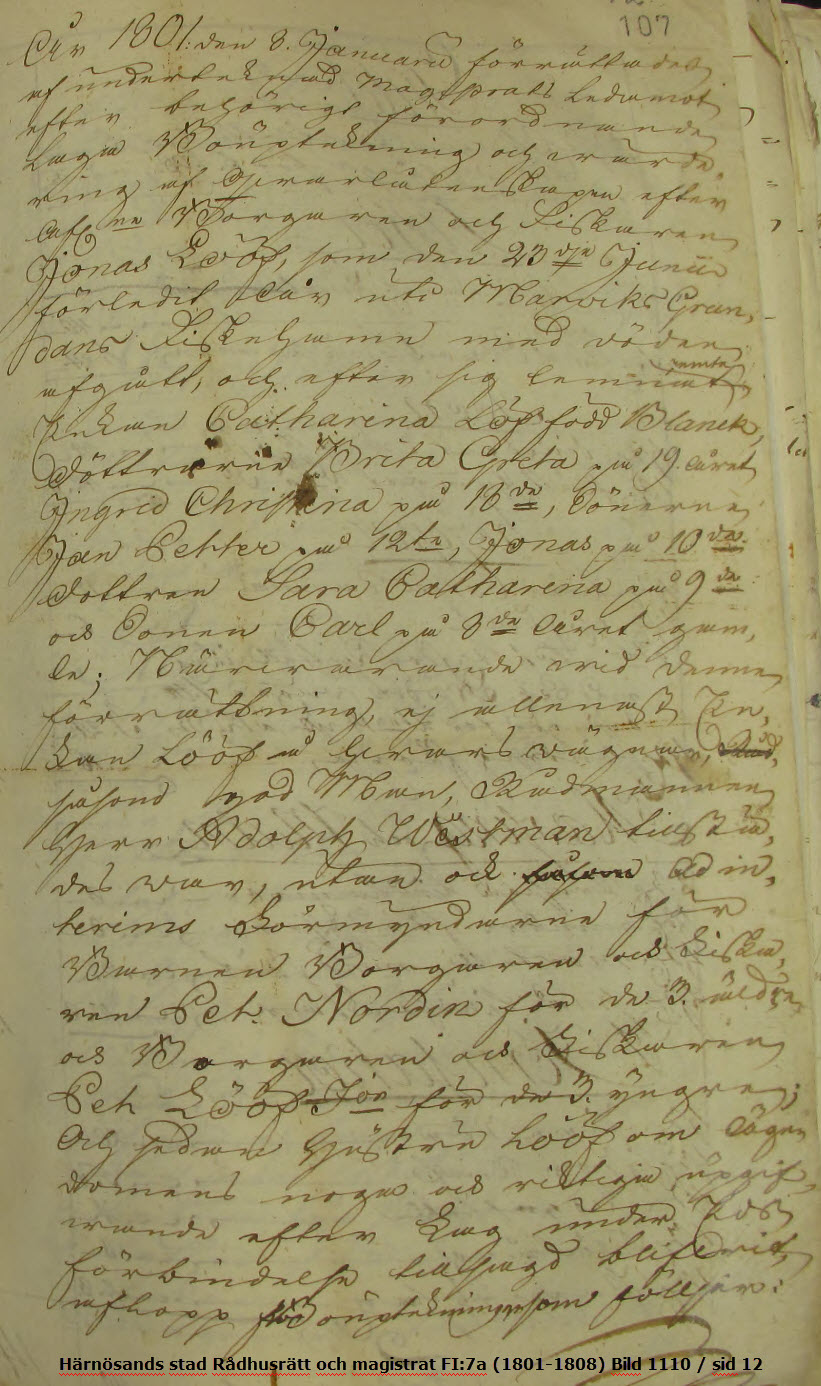 107
År 1801. den 8. Januarii förrättades
af undertecknad Magistrats Ledamot
efter behörigt förordnande
Laga Bouptekning och wärde,
ring af Qvarlåtenskapen efter
Afl:ne Borgaren och Fiskaren
Jonas Lööf, som den 23dje Junii
förledit År uti Marviks Grun,
dans Fiskehamn med döden
afgått, och efter sig lemnat
Enkan Catharina Löf född Blanck, 
Döttrarne Brita Greta på 19. året
Ingrid Christina på 18de, Sönerne
Jan Petter på 12te, Jonas på 10de
dottren Sara Catharina på 9de
och Sonen Carl på 8de Året gam,
le; Närwarande wid denna
förrättning, ej allenast En,
kan Lööf å hwars wägnar,
såsom god Man, Rådmannen
Herr Adolph Wästman tillstä,
des war, utan ock såsom Ad in,
terims Förmyndarne för
Barnen Borgaren och Fiska,
ren Pet. Nordin för de 3. äldre,
och Borgaren och Fiskaren
Pet Lööf Jon för de 3. yngre;
Och sedan Hustru Lööf om Ägen
domens noga och riktiga uppgif,
wande efter Lag under Eds
förbindelse tillsagd blifwit,
aflopp Bouptekningen som följer:
Härnösands stad Rådhusrätt och magistrat FI:7a (1801-1808) Bild 1110 / sid 12